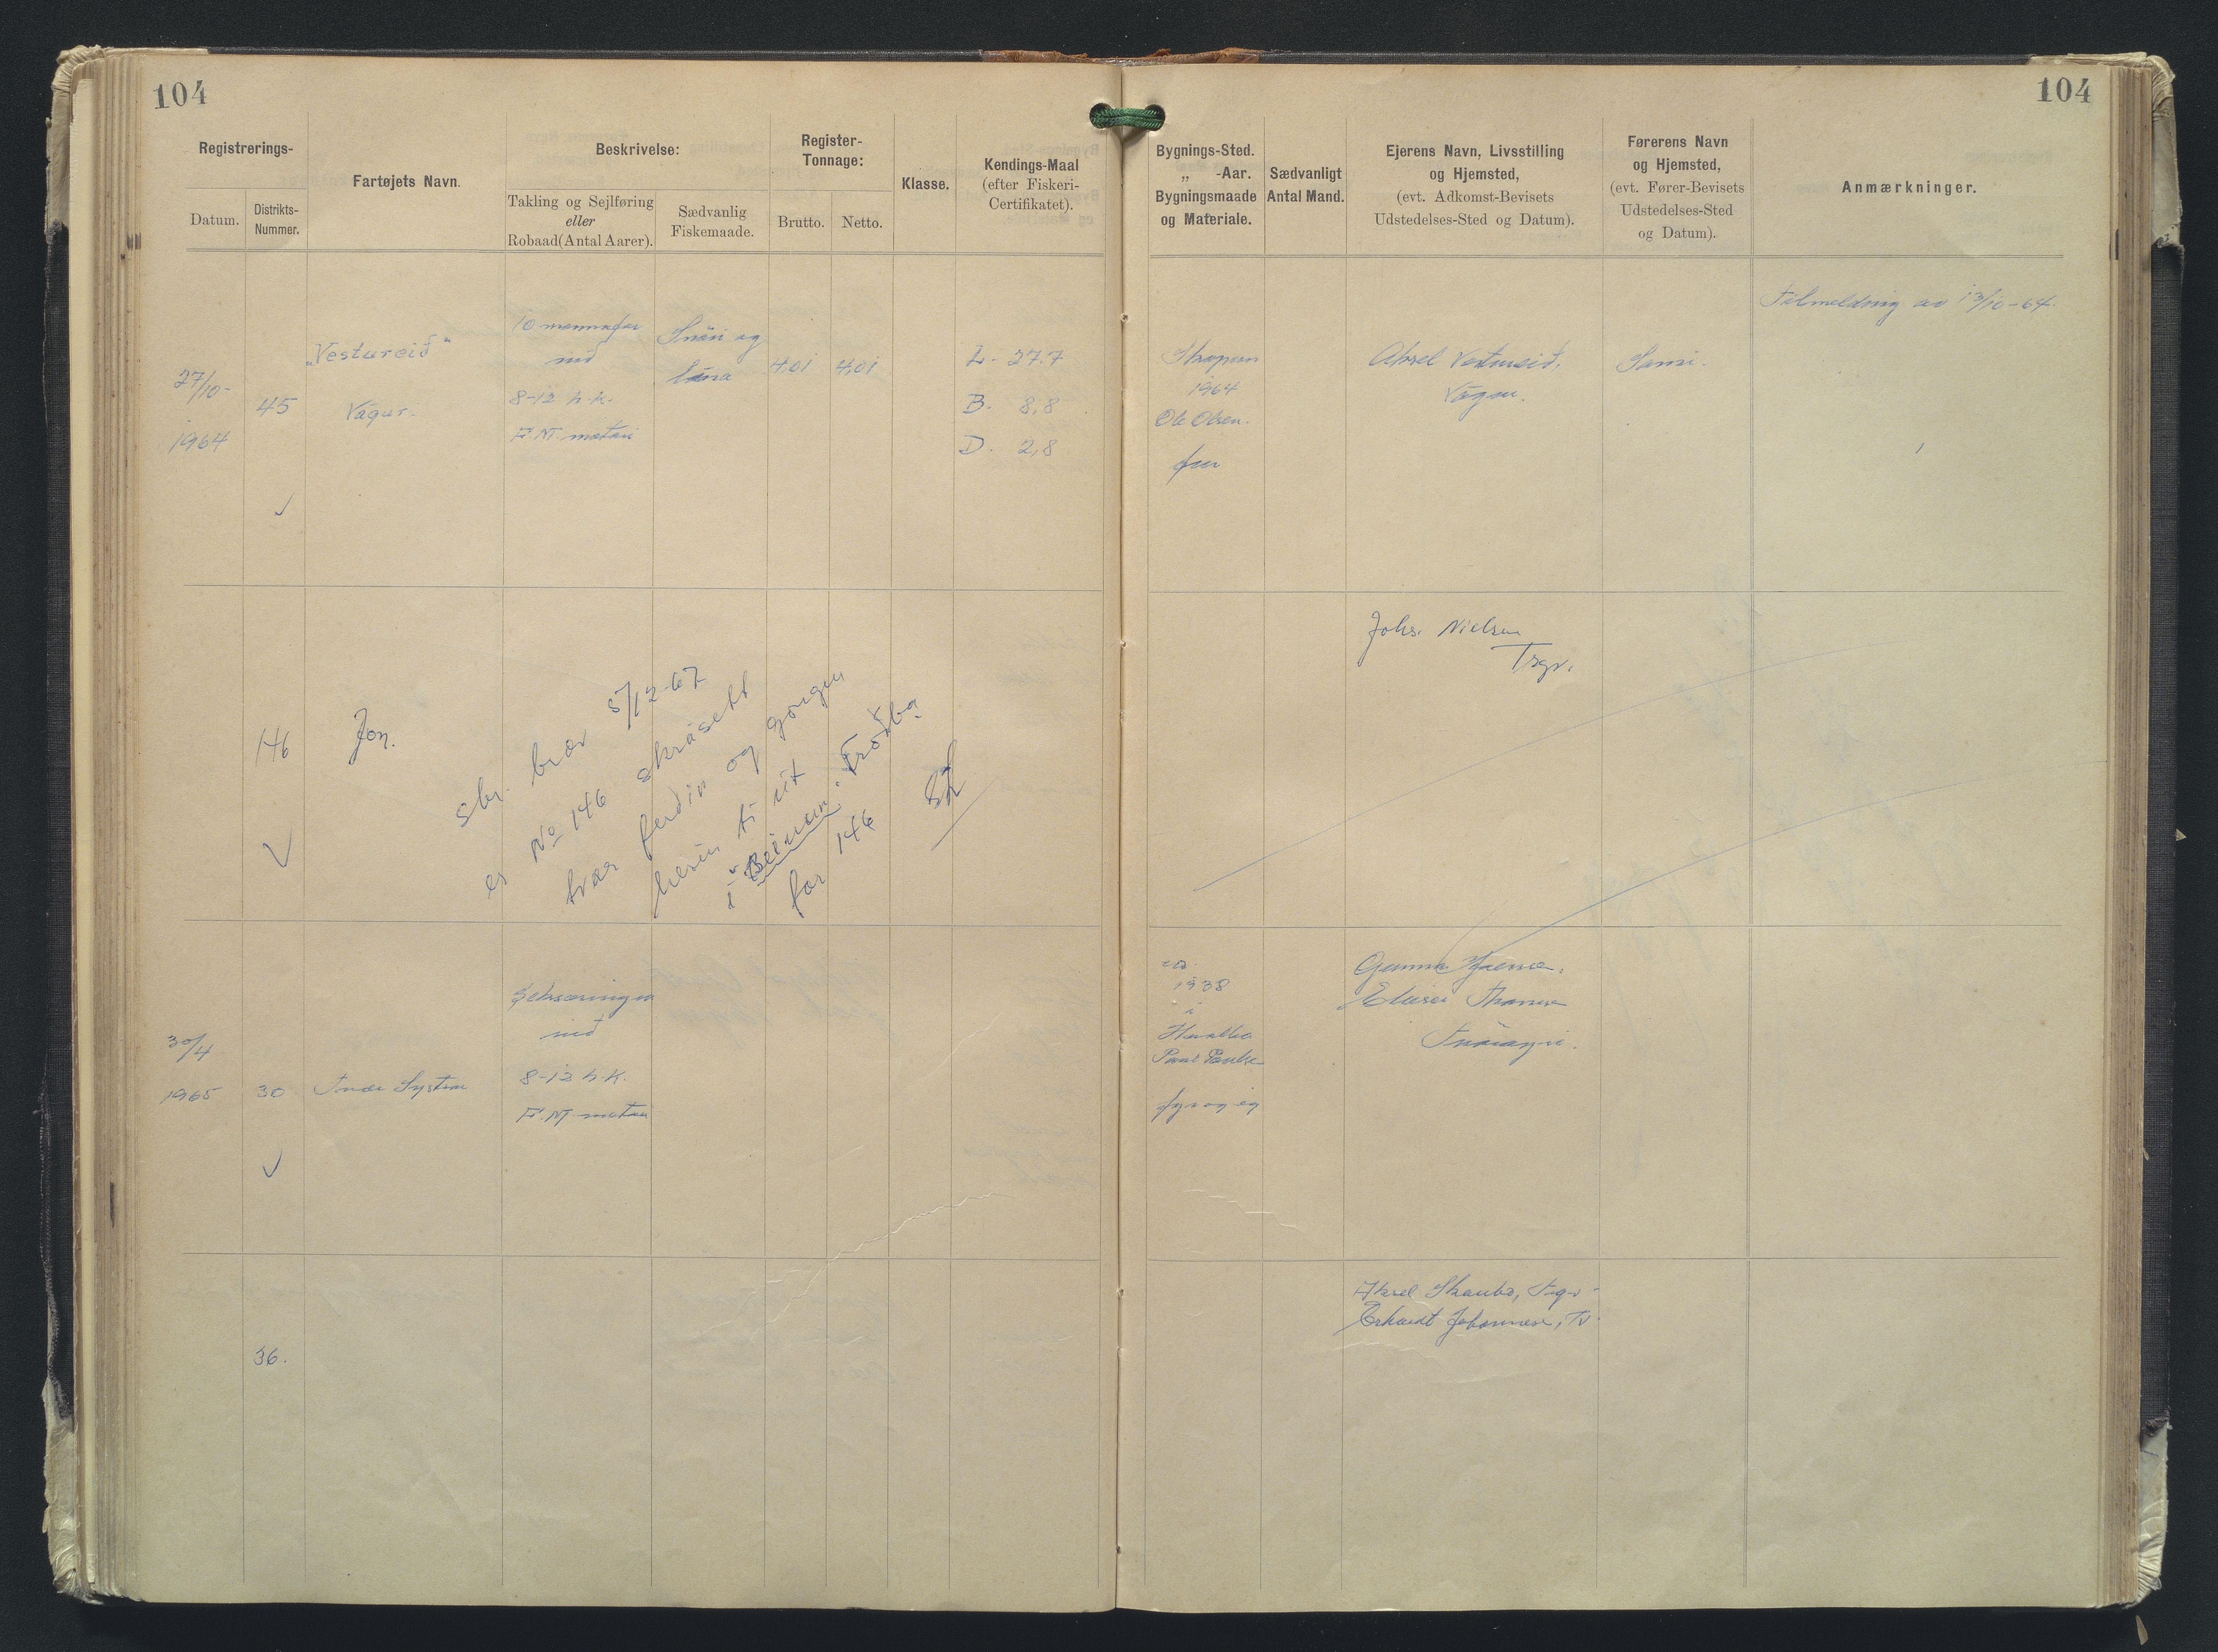 104
104
Registrerings-
Datum.
Distrikts-
Nummer.
Fartøjets Navn.
Beskrivelse:
Takling og Sejlføring
eller
Robaad(Antal Aarer).
Sædvanlig
Fiskemaade.
Register-
Tonnage:
Brutto.
Netto.
Klasse.
Kendings-Maal
(efter Fiskeri-
Certifikatet).
Bygnings-Sted.
„ -Aar.
Bygningsmaade
og Materiale.
Sædvanligt
Antal Mand.
Ejerens Navn, Livsstilling
og Hjemsted,
(evt. Adkomst-Bevisets
Udstedelses-Sted og Datum).
Førerens Navn
og Hjemsted,
(evt. Fører-Bevisets
Udstedelses-Sted
og Datum).
Anmærkninger.
27/10-
1964
45
„Vestureið"
Vágur.
10 mannafar
við
8-12 h.k.
F.M. motori
Snøri og
lína
4,01
4,01
L. 27.7
B. 8,8
D. 2,8
Skopun
1964
Ole Olsen.
fur
Aksel Vestureið,
Vágur.
Sami.
Tilmelding av 13/10-64.
146
Jon.
sbr. bræv 5/12-67
er No 146 skrásett
tvær ferðir og gongur
hesin tí út
í Beinur, Froðba
for 146
Johs. Nielsen
Tsgv.
30/4
1965
30
við
8-12 h.k.
F.M. motor
ca.
1938
í
Hvalba
og eg
36.
Aksel
Erhardt Johannesen, Tv.